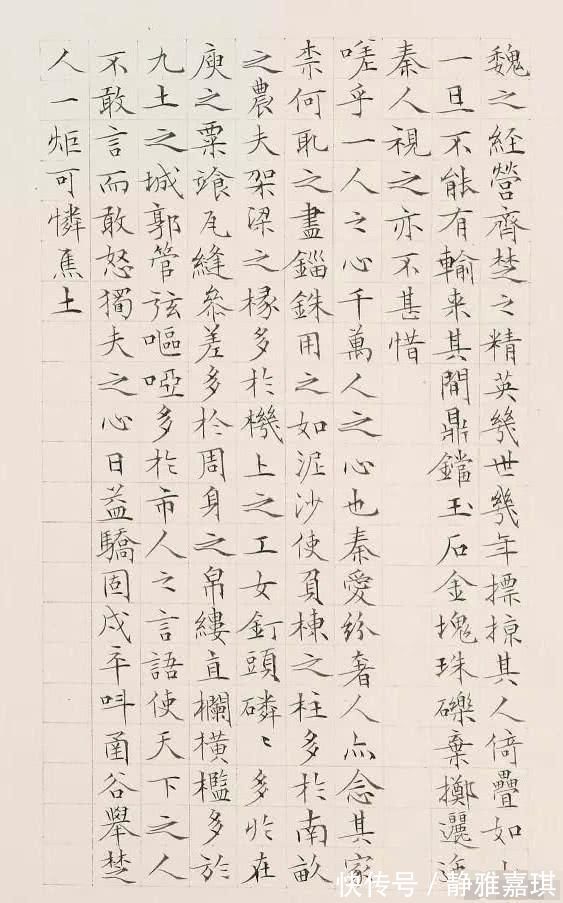 魏之經營齊楚之精英幾世幾年摽掠其人倚疊如山
一旦不能有輸來其間鼎鐺玉石金塊珠礫棄擲邐迤
秦人視之亦不甚惜
嗟乎一人之心千萬人之心也秦愛紛奢人亦念其家
柰何取之盡錙銖用之如泥沙使負棟之柱多於南畝
之農夫架梁之椽多於機上之工女釘頭磷〻多於在
庾之粟飧瓦縫參差多於周身之帛縷直欄橫檻多於
九土之城郭管弦嘔啞多於市人之言語使天下之人
不敢言而敢怒獨夫之心日益驕固戍卒叫函谷舉楚
人一炬可憐焦土
快传号/静雅嘉琪